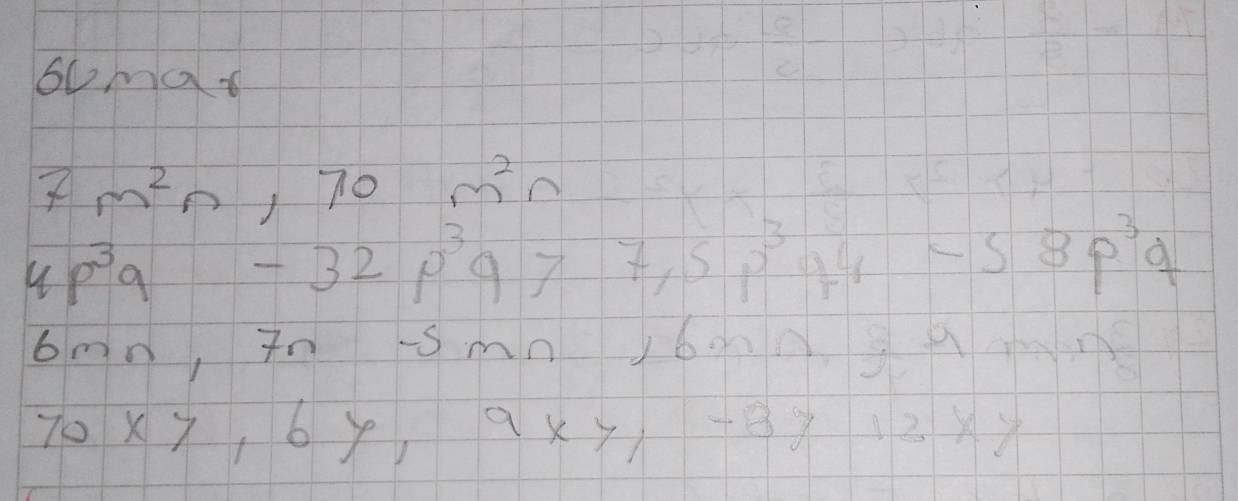 sumar
7 m²n, 10 m²n
4 p³q -32 p³q, 7,5 p³q, -5 8 p³q
6mn, 7n -5 mn, 6mn, 9 mn
10 xy, 6y, 9xy, -8y 12xy